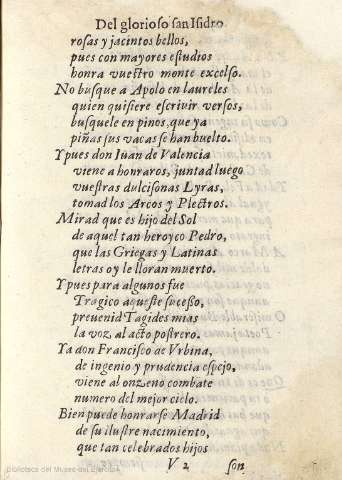 Del glorioso san Isidro
rosas y jacintos bellos,
pues con mayores estudios
honra vuestro monte excelso.
No busque a Apolo en laureles
quien quisiere escrivir versos,
busquele en pinos, que ya
piñas sus vacas se han buelto.
Y pues don Iuan de Valencia
viene a honraros, juntad luego
vuestras dulcisonas Lyras,
tomad los Arcos y Plectros.
Mirad que es hijo del Sol
de aquel tan heroyco Pedro,
que las Griegas y Latinas
letras oy le lloran muerto.
Y pues para algunos fue
Tragico aqueste sucesso,
prevenid Tagides mias
la voz al acto postrero.
Ya don Francisco de Vrbina,
de ingenio y prudencia espejo,
viene al onzeno combate
numero del mejor cielo.
Bien puede honrarse Madrid
de su ilustre nacimiento,
que tan celebrados hijos
V 2 son
Biblioteca del Museo del Ejército